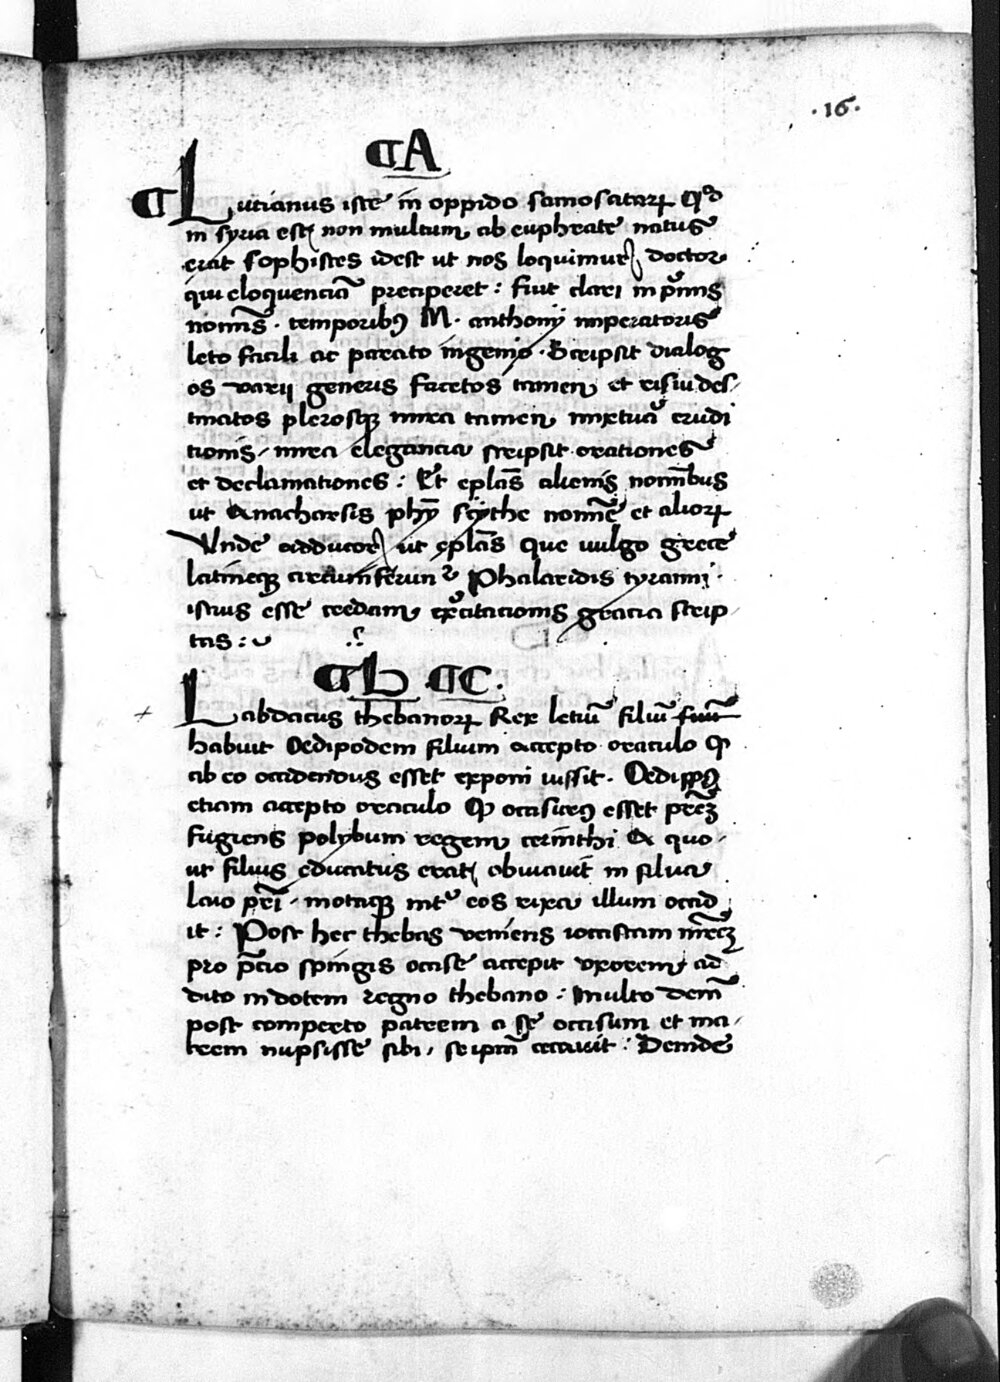 ·16·
¶A
¶Lucianus iste in oppido samosatarꝝ Qd
in syria est non multum ab euphrate natus
erat sophistes idest ut nos loquimur doctor
qui eloquenciā preciperet : fuit clari in primis
nominis · temporibꝰ M · anthonij imperatoris
leto facili ac parato ingenio · Scripsit dialog
os varij generis facetos tamen et risiu des-
tinatos plerosqꝫ mira tamen mixtura erudi
tionis / mira elegancia scripsit orationes
et declamationes : Et eplās alienis nominibus
ut Anacharsis phӯ scӱthe nomīe et aliorꝝ
Unde adducor ut eplās que uulgo grece
latineqꝫ circumferunᷣ Phalaridis tyranni ·
istius esse credam exercitacionis gracia scrip-
tas :
¶B ¶C ·
Labdacus thebanorꝝ Rex letiū filiū
habuit Oedipodem filium accepto oraculo ꝙ
ab eo occidendus esset exponi iussit · Oedippꝰ
etiam accepto oraculo ꝙ occisurꝰ esset prēꝫ
fugiens polybum regem corinthi A quo
ut filius educatus erat obuiauit in silua
laio prī · motaqꝫ int eos rixa illum occid
it : Post hec thebas veniens iocastam mrēꝫ
pro p̄cio spingis occise accepit vxorem ad
dito in dotem regno thebano : multo dem̄
post comperto patrem a se occisum et ma-
trem nupsisse sibi / seipm̄ cecauit : Deinde